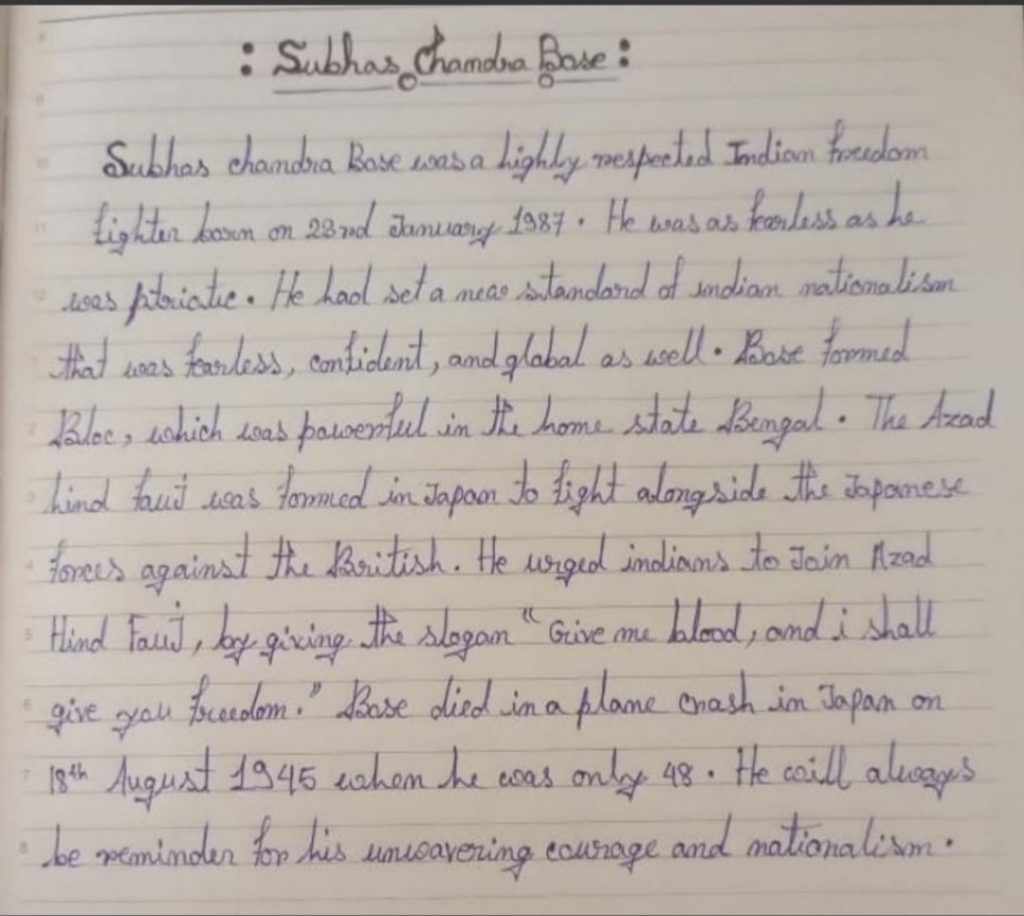 : Subhas Chandra Base :
Subhas chandra Base was a highly respected Indian freedom
fighter born on 23nd January 1987. He was as fearless as he
was ptriatic. He had set a new standard of indian nationalism
that was fearless, confident, and global as well. Base formed
Bloc, which was pawerful in the home state Bengal. The Azad
hind fauj was formed in Japan to fight alongside the Japanese
forces against the British. He urged indians to Join Azad
Hind Fauj, by giving the slogan "Give me blood, and i shall
give you freedom." Base died in a plane crash in Japan on
18th August 1945 when he was only 48. He will always
be reminder for his unwavering courage and nationalism.